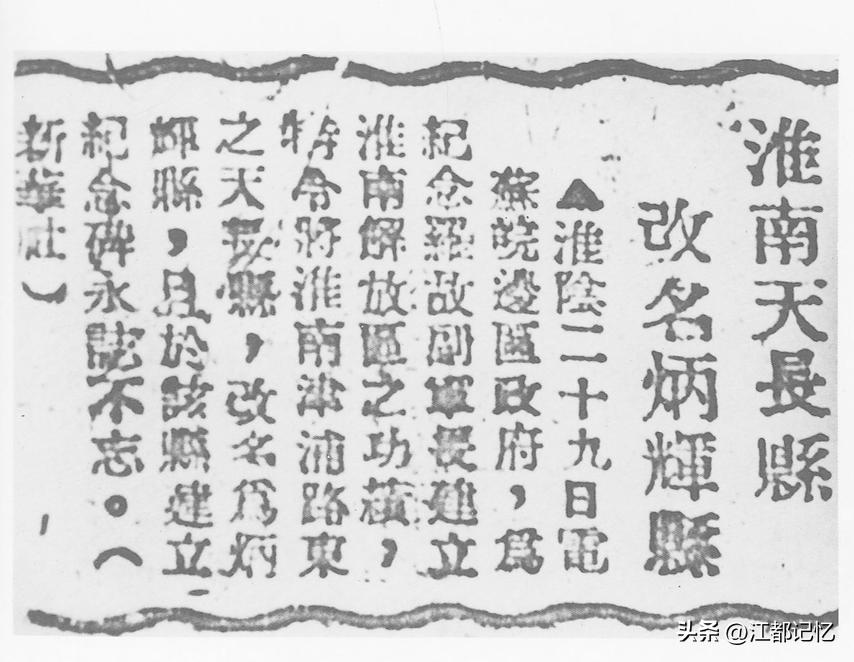 淮南天長縣
改名炳輝縣
▲淮陰二十九日電
蘇皖邊區政府，爲
紀念羅故副軍長建立
淮南解放區之功績，
特令將淮南津浦路東
之天長縣，改名爲炳
輝縣，且於該縣建立
紀念碑永誌不忘。（
新華社）
头条 @江都记忆